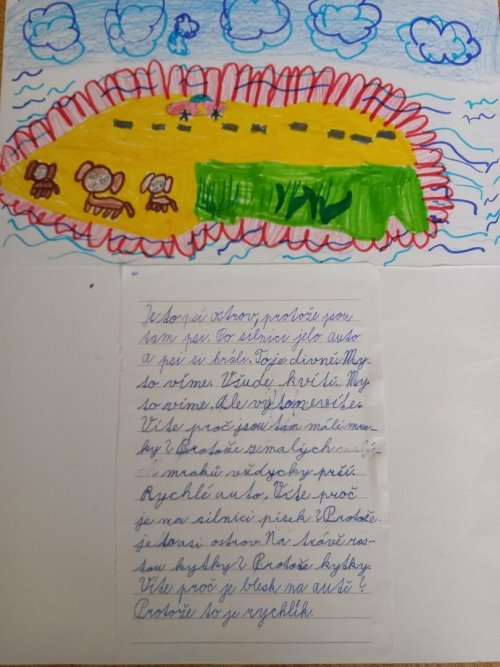 Je to psí ostrov, protože jsou
tam psi. Po silnici jelo auto
a psi si hráli. To je divné. My
to víme. Všude kvítí. My
to víme. Ale vy to nevíte.
Víte proč jsou tam málé mra-
ky? Protože z malých
mraků vždycky prší.
Rychlé auto. Víte proč
je na silnici písek? Protože
je to asi ostrov. Na trávě ros-
tou kytky? Protože kytky.
Víte proč je blesk na autě?
Protože to je rychlík.